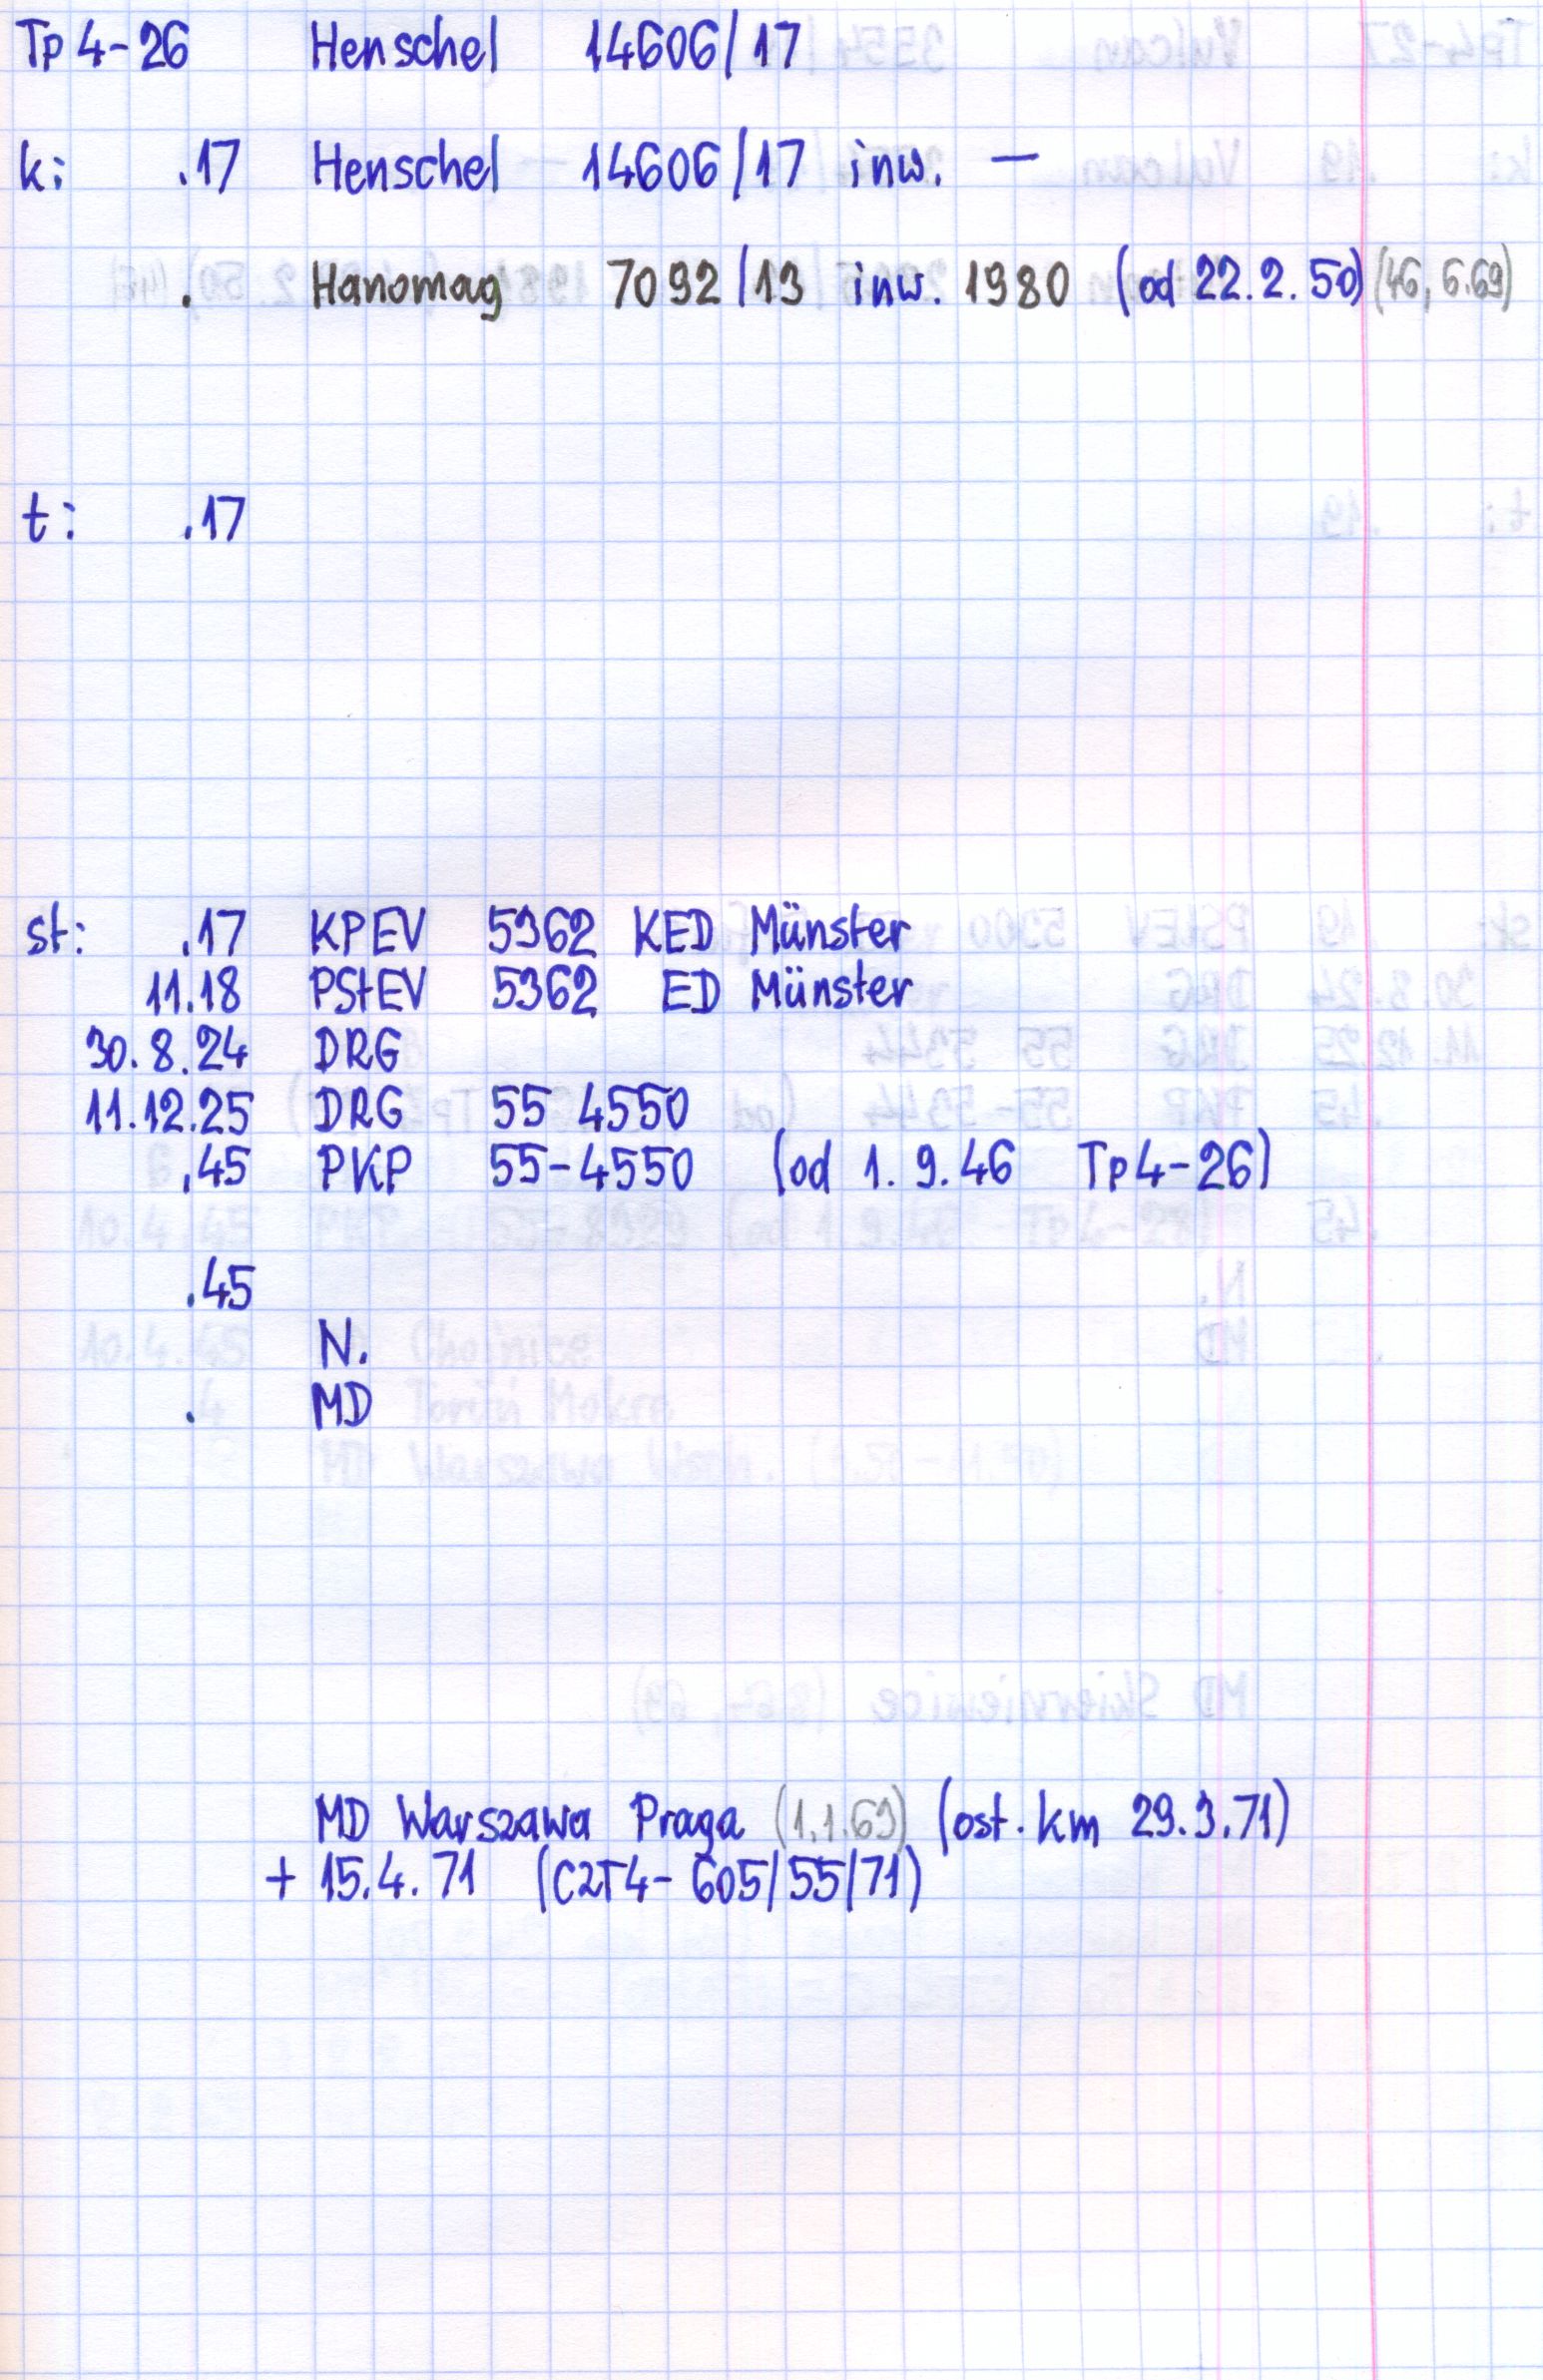 Tp 4-26 Henschel 14606/17
k: .17 Henschel 14606/17 inw. —
. Hanomag 7092/13 inw. 1980 (od 22.2.50) (46, 6.69)
t: .17
st: .17 KPEV 5362 KED Münster
11.18 PStEV 5362 ED Münster
30.8.24 DRG
11.12.25 DRG 55 4550
.45 PKP 55-4550 (od 1.9.46 Tp4-26)
.45
N.
. MD
MD Warszawa Praga (1.1.69) (ost. km 29.3.71)
+ 15.4.71 (C2T4- 605/55/71)